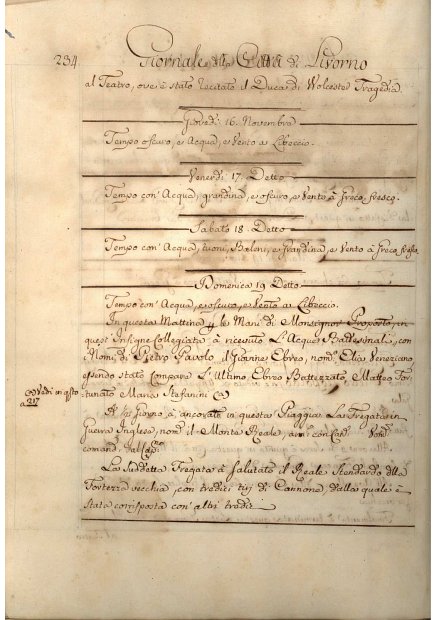 234 Giornale della Città di Livorno
al Teatro, ove è stato recitato il Duca di Wolcester Tragedia.
Giovedì 16. Novembre
Tempo oscuro, e Acqua, e Vento a Libeccio.
Venerdì 17. Detto
Tempo con' Acqua, grandina, e oscuro, e Vento à Greco fresco.
Sabato 18. Detto
Tempo con' Acqua, tuoni, Baleni, e Grandina, e Vento à Greco
Domenica 19 Detto
Tempo con' Acqua, e oscuro, e Vento a Libeccio.
In questa Mattina le Mani di Monsignor Proposto, in
quest' Insegne Collegiata à ricevuto L'Acque Battesimali, con
Nomi, di Pietro Pavolo il Giovine Ebreo, nom.e Elia Veneziano
essendo stato Compare L'Ultimo Ebreo Battezzato, Matteo For-
tunato Maria Stefanini (a)
(a) Vedi in questo
a 217
A M. Giorno à ancorato in questa Piaggia La Fregata in
Guerra Inglese, nom. il Monte Reale,
comand.
La Suddetta Fregata à Salutato il Reale Stendardo della
Fortezza vecchia, con tredici tiri di Cannone, dalla quale è
Stata corrisposta con' altri tredici